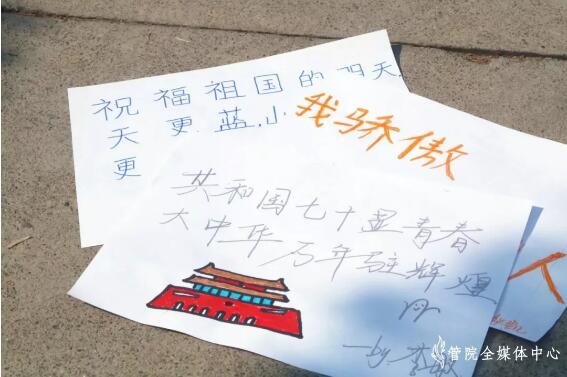 祝福祖国的明天,
天更蓝,小
更
我骄傲
人
共和国七十显青春
大中华万年驻辉煌
—by 李
管院全媒体中心